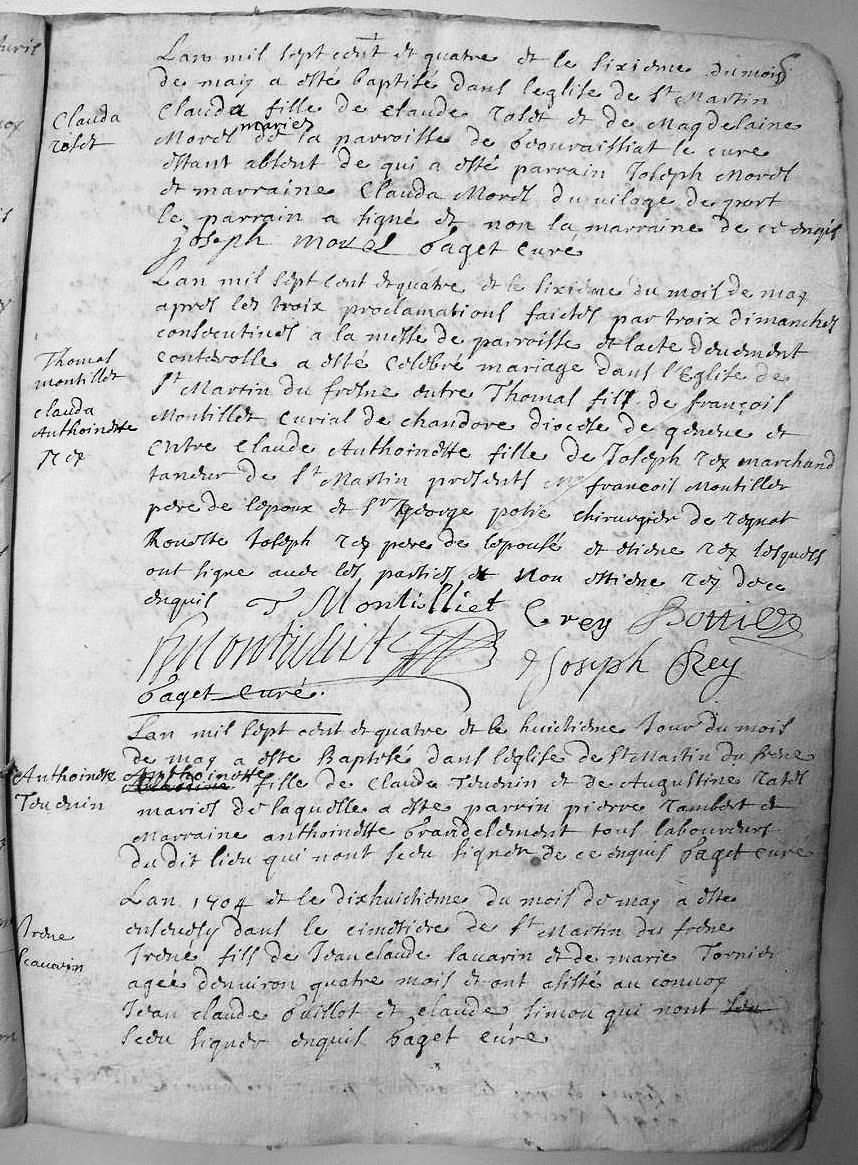 Lan mil sept cent et quatre et le sixieme du mois
de may a esté baptisé dans leglise de St Martin
Clauda
roset
Clauda fille de claude roset et de Magdelaine
Morel mariez de la parroisse de beouraissiat le cure
estant absent de qui a esté parrain Joseph Morel
et marraine Clauda Morel du vilage de port
le parrain a signé et non la marraine de ce enquis
joseph morel Paget curé
Lan mil sept cent et quatre et le sixieme du mois de may
apres les troix proclamations faictes par troix dimanches
consecutives a la messe de parroisse et lacte deuement
controolle a esté celebré mariage dans l'Eglise de
Thomas
montillet
clauda
Anthoinette
rey
St Martin du fresne entre Thomas fils de françois
Montillet curial de chandore diocese de geneue et
entre claude Anthoinette fille de Joseph rey marchand
taneur de St Martin presents françois Montillet
pere de lepoux et Sr george chirurgien de
Joseph rey pere de lepouse et etiene rey lesquels
ont signe auec les parties et non ettiene rey de ce
enquis T Montilliet C rey
Montilliet Joseph Rey
Paget curé.
Lan mil sept cent et quatre et le huictieme Jour du mois
de may a este Baptisée dans leglise de St Martin du frene
Anthoinette
Teuenin
Anthoinette fille de Claude Teuenin et de Augustine ratel
maries de laquelle a este parrin pierre rambert et
Marraine anthoinette grandclement tous laboureurs
du dit lieu qui nont sceu signer de ce enquis Paget cure
Lan 1704 et le dixhuictieme du mois de may a este
enseuely dans le cimetiere de St Martin du frene
Irene
sauarin
Irené fils de Jean claude sauarin et de marie Tornier
agée denuiron quatre mois et ont asisté au conuoy
Jean claude Guillot et claude simon qui nont
sceu signer enquis Paget cure